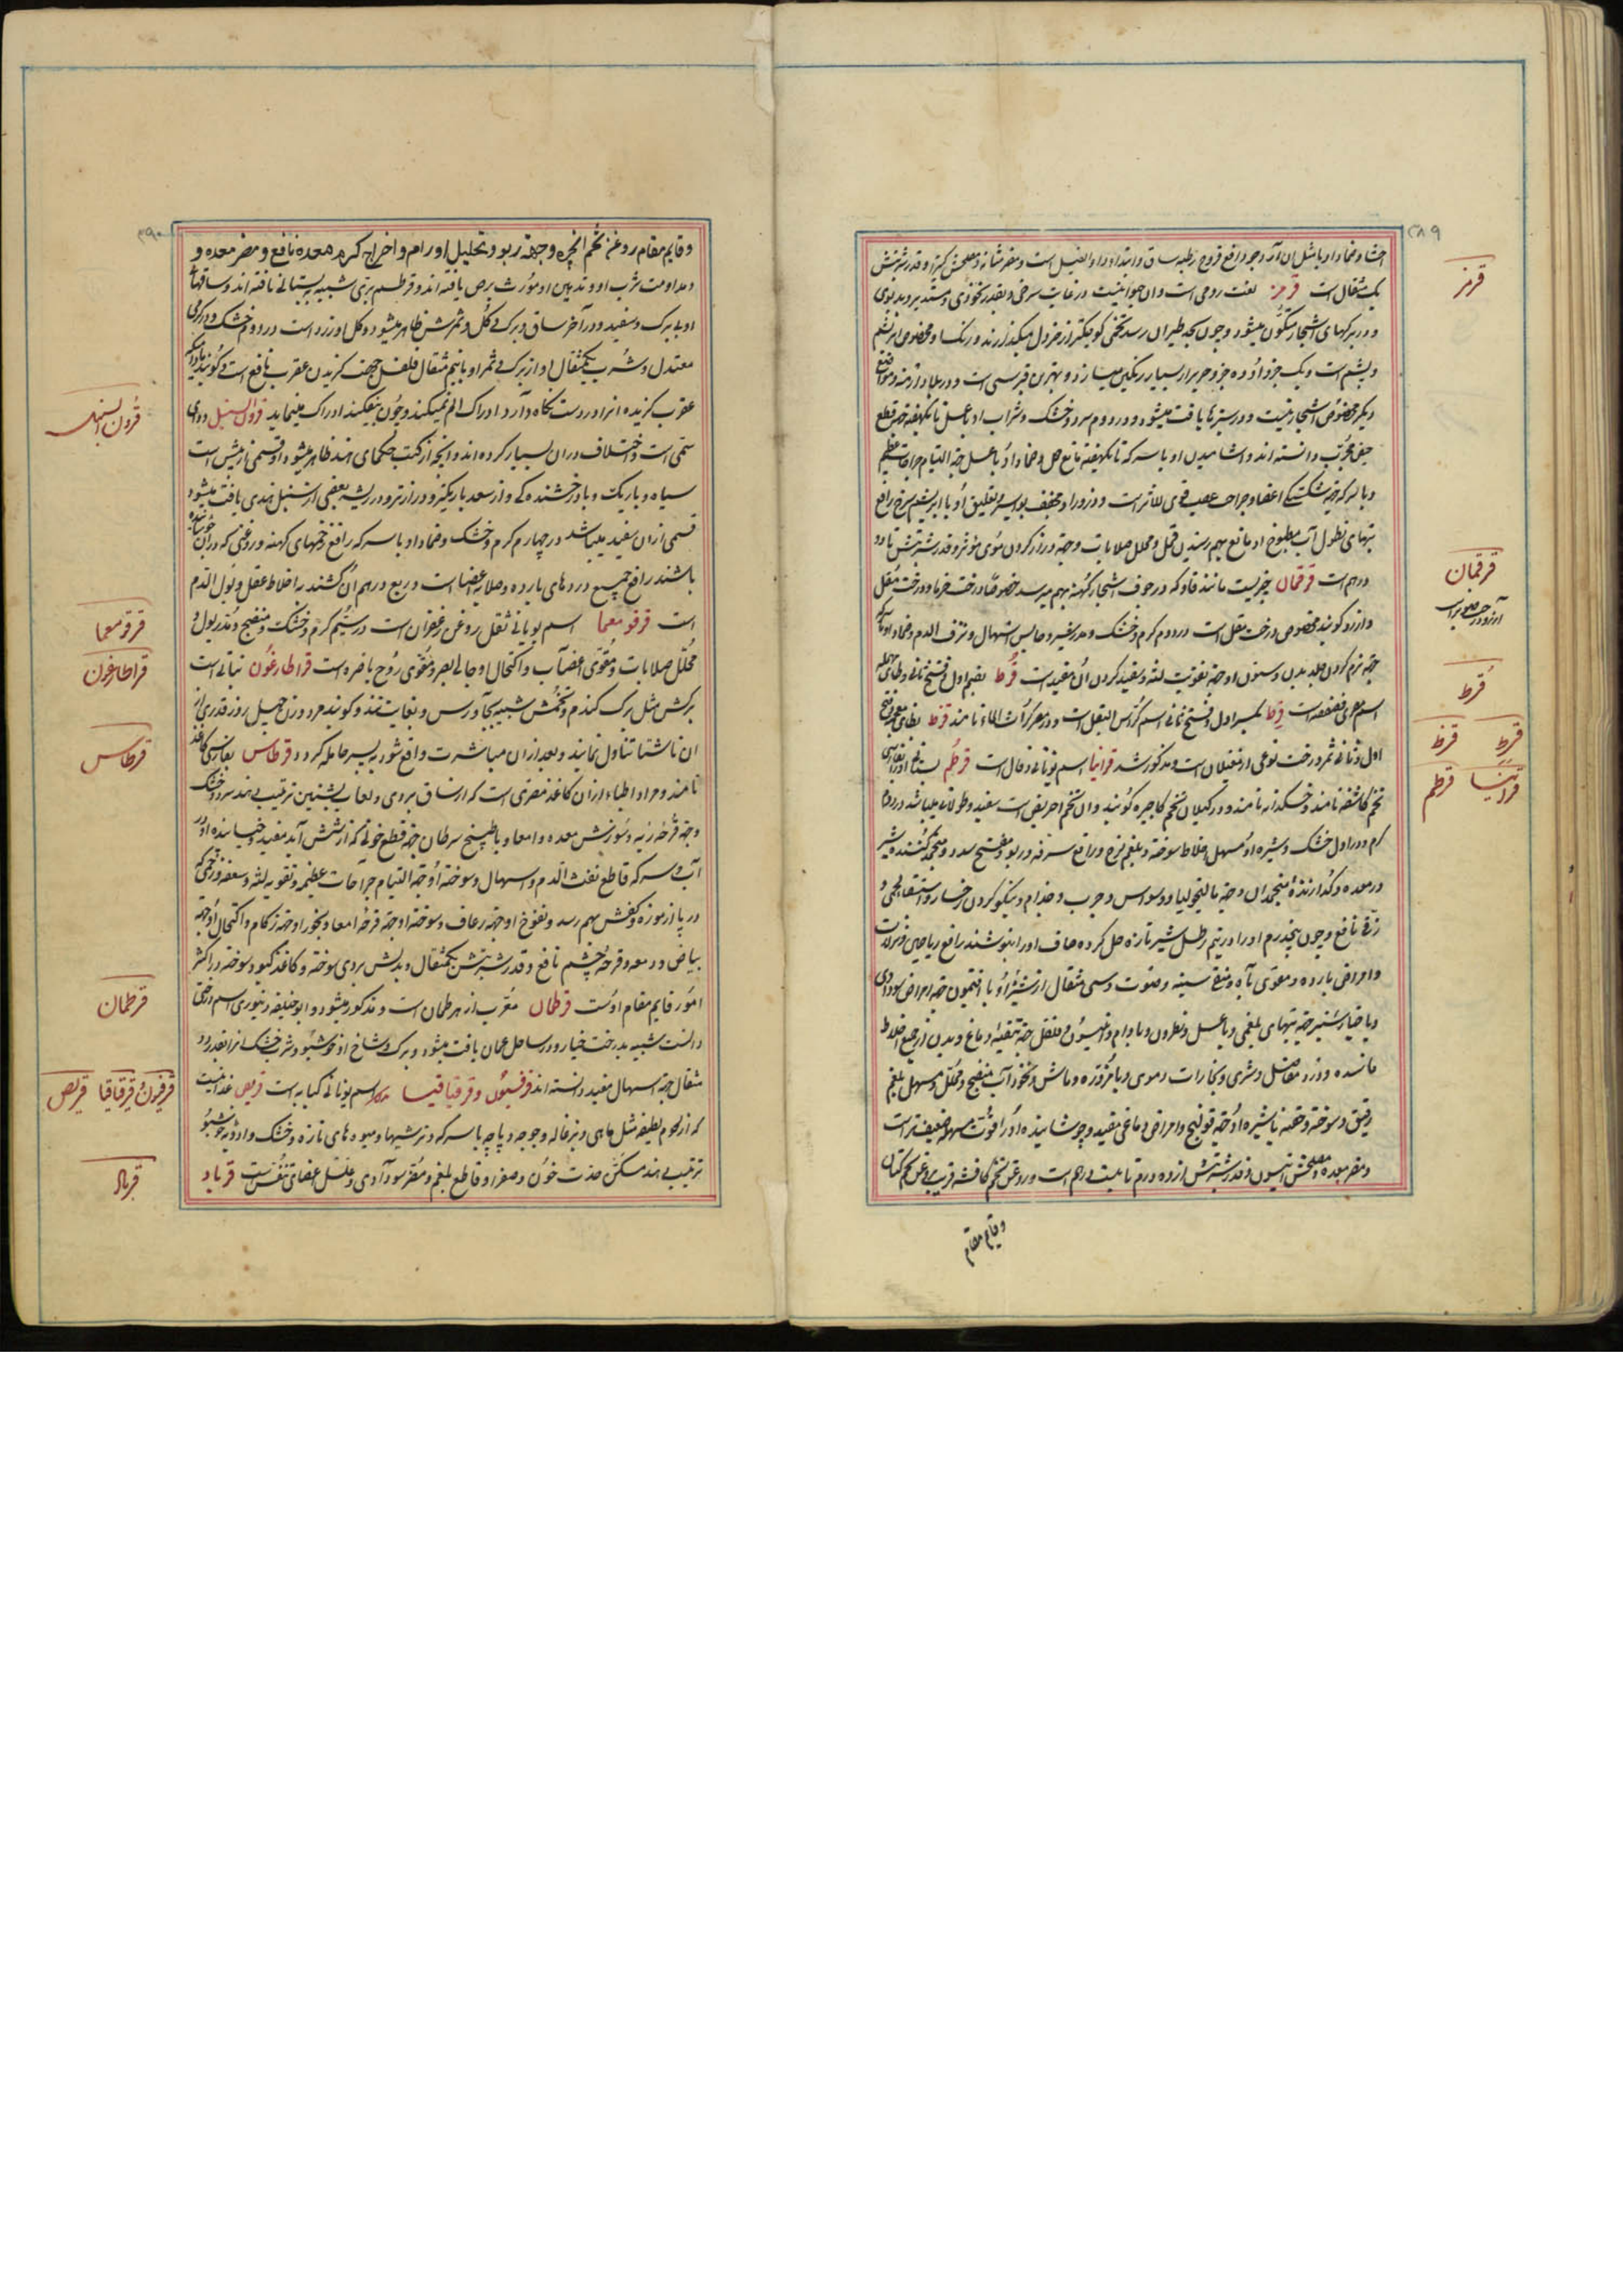 ۲۸۹
احشا وضماد او با مثل ان آرد جو رافع قروح رطبه ساق و ابتدا و داء الفیل است و مضر مثانه و مصلحش کتیرا و قدر شربتش
یک مثقال است قرمز لغت رومی است و ان حیوانیست در غایت سرخی و بقدر نخودی و مستدیر و بدبوی
و در برکهای اشجار متکون میشود و چون بحد طیران رسد تخمی کوچکتر از خردل میکذارند و رنک او مخصوص ابریشم
و پشم است و یک جزو او ده جزو حریر را بسیار رنکین میسازد و بهترین قبرسی است و در بلاد ارمنه و مواضع
دیکر مخصوص اشجار نیست و در سبزها یافت میشود و در دوم سرد و خشک و شراب او با عسل تا یکهفته جهة قطع
حیض مجرب دانسته اند و اشامیدن او با سرکه تا یکهفته مانع حمل وضماد او با عسل جهة التیام جراحات عظیم
و با سرکه جهة شکستکی اعضا و جراحت عصب قوی الاثر است و ذرور او مجفف بواسیر و تعلیق او با ابریشم سرخ رافع
تبهای نطول آب مطبوخ او مانع بهم رسیدن قمل و محلل صلابات و جهة دراز کردن موی مؤثر و قدر شربتش تا دو
درهم است قرقمان چیزیست مانند قاو که در جوف اشجار کهنه بهم میرسد خصوصا درخت خرما و درخت مقل
و ازرد کویند مخصوص درخت مقل است در دوم کرم و خشک و مدر شیر و حابس اسهال و نزف الدم وضماد او با آب
جهة نرم کردن جلد بدن و سنون او جهة تقویت لثه و سفید کردن آن مفید است قرط بضم اول و فتح ثانی و طاء مهمله
اسم مصری فصفصه است قرط بکسر اول و فتح ثانی اسم کراث البقل است و در مصر کراث المائده نامند قرظ بظای معجمه و فتح
اول و ثانی ثمر درخت نوعی از مغیلان است و مذکور شد قرانیا اسم یونانی ذغال است قرطم بستانی او را بفارسی
تخم کاشفه نامند و خسکدانه نامند و در کیلان تخم کاجیره کویند و ان تخم احریض است سفید و طولانی میباشد در دوم
کرم و در اول خشک و شیره او مسهل اخلاط سوخته و بلغم لزج و رافع سرفه و ربو و مفتح سدد و منجمد کننده شیر
در معده و کدازنده منجمد ان و جهة مالیخولیا و وسواس و جرب و جذام و نیکو کردن رخسار و استسقاء لحمی و
زقی نافع و چون پنجدرم او را در نیم رطل شیر تازه حل کرده صاف او را بنوشند رافع ریاح
و امراض بارده و مقوی باه و منقی سینه و صوت و سی مثقال از شیر او با افتیمون جهة امراض سوداوی
و با خیار شنبر جهة تبهای بلغمی و با عسل و نطرون و با بادام و انیسون و فلفل جهة تنقیه دماغ و بدن از جمیع اخلاط
فاسده و درد مفاصل و شری و بخارات دموی و با مزوره و ماش و نخود آب منضج و محلل و مسهل بلغم
رقیق و سوخته و حقنه با شیره او جهة قولنج و امراض دماغی مفید و چوشانیده او را قوت مسهله ضعیفتر است
و مضر معده و مصلحش انیسون و قدر شربتش از ده درم تا بیست درهم است و روغن تخم کافشه قریب بروغن تخم کتان
وقایم مقام
قرمز
قرقمان
قرط
قرط قرظ
قرانیا قرطم
۲۹۰
وقایم مقام روغن تخم انجره و جهة ربو و تحلیل اورام و اخراج کرم معده نافع و مضر معده و
مداومت شرب او و تدهین او مورث برص یافته اند و قرطم بری شبیه به بستانی یافته اند و ساقهای
او بی برک و سفید و در آخر ساق و برک کل و ثمرش ظاهر میشود و کل او زرد است در دوم خشک و در کرمی
معتدل و شرب یکمثقال او از برک و ثمر او با نیم مثقال فلفل جهت کزیدن عقرب نافع است و کویند مادامیکه
عقرب کزیده انرا در دست نکاه دارد ادراک الم نمیکند و چون بیفکند ادراک مینماید قرون السنبل دوای
سمی است و اختلاف در ان بسیار کرده اند و انچه از کتب حکمای هند ظاهر میشود او قسمی از بیش است
سیاه و باریک و با درخشندکی و از سعد باریکتر و درازتر و در ریشه بعضی از سنبل هندی یافت میشود
قسمی از ان سفید میباشد در چهارم کرم و خشک و ضماد او با سرکه رافع زخمهای کهنه و روغنی که در ان جوشانیده
باشند رافع جمیع دردهای بارده و صلابه اعضا است و ربع درهم ان کشنده باخلاط عقل و بول الدم
است قرقومعما اسم یونانی ثفل روغن زعفران است در سیم کرم و خشک و منضج و مدر بول و
محلل صلابات و مقوی اعصاب و اکتحال او جالی بصر و مقوی روح باصره است قراطارغون نباتی است
برکش مثل برک کندم و تخمش شبیه بجاورس و بغایت تند و کویند مرد و زن چهل روز قدری از
ان ناشتا تناول نمایند و بعد از ان مباشرت واقع شود به پسر حامله کردد قرطاس بفارسی کاغذ
نامند و مراد اطباء از ان کاغذ مصری است که از ساق بردی و لعاب بشنین ترتیب دهند سرد و خشک
و جهة قرحه ریه و سوزش معده و امعا و با طبیخ سرطان جهة قطع خونی که از شش آید مفید و خیسانیده او در
آب و سرکه قاطع نفث الدم و اسهال و سوخته او جهة التیام جراحات عظیمه و تقویه لثه و سعفه و زخمی که
در پا از موزه و کفش بهم رسد و نفوخ او جهة رعاف و سوخته او جهة قرحه امعا و بخور او جهة زکام و اکتحال او جهة
بیاض و دمعه و قرحه چشم نافع و قدر شربتش یکمثقال و بدلش بردی سوخته و کاغذ کبود سوخته در اکثر
امور قایم مقام اوست قرطمان معرب از هرطمان است و مذکور میشود و ابو حنیفه دینوری اسم درختی
دانسته شبیه بدرخت خیار و در ساحل عمان یافت میشود و برک و شاخ او خوشبو و شرب خشک انرا بقدر دو
مثقال جهة اسهال مفید دانسته اند قرفیون و قرقیاقیا اسم یونانی کبابه است قریص غذائیست
که از لحوم لطیفه مثل ماهی و بزغاله و جوجه و پاچه با سرکه و ترشیها و میوه های تازه و خشک و ادویه خوشبو
ترتیب دهند مسکن حدت خون و صفرا و قاطع بلغم و مضر سوداوی و علل اعضای تنفس است قرباد
قرون السنبل
قرقومعما
قراطارغون
قرطاس
قرطمان
قرفیون قرقیاقیا قریص
قرباد